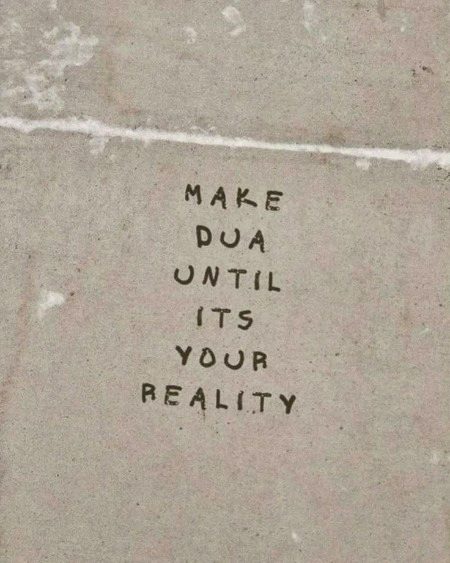 MAKE
DUA
UNTIL
ITS
YOUR
REALITY